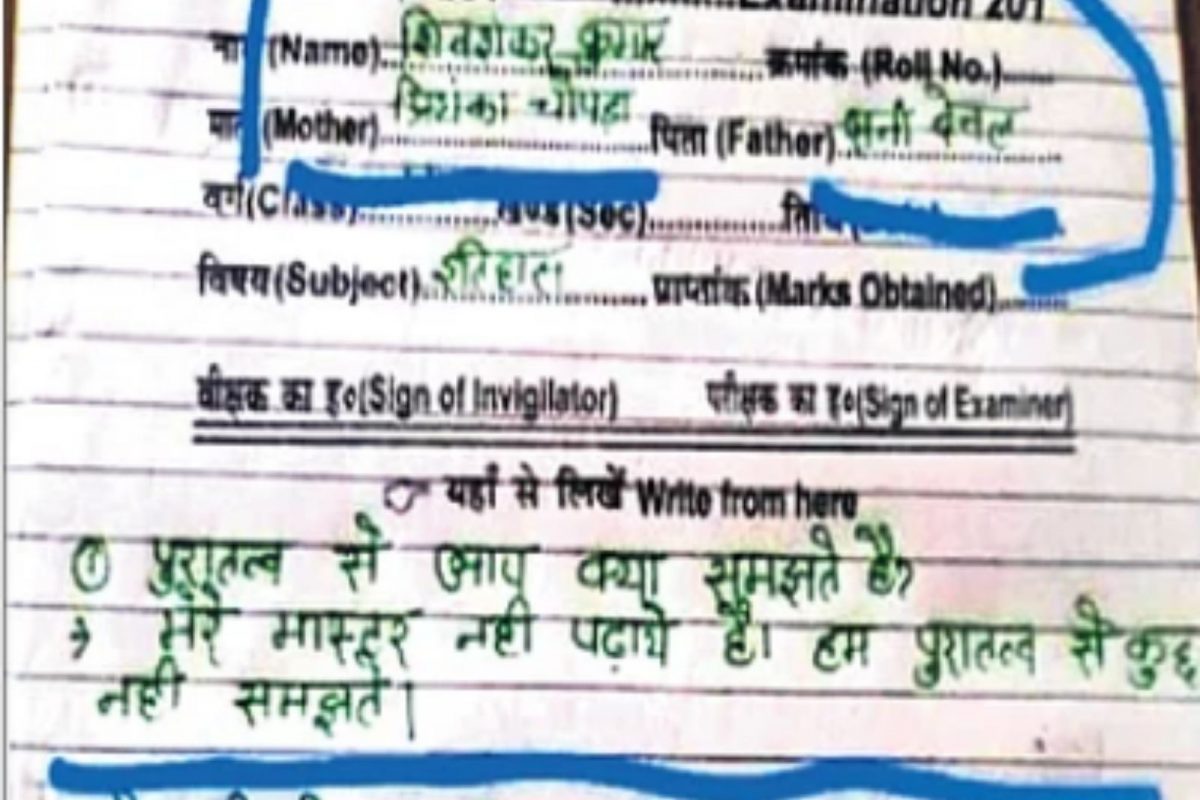 Examination 201
(Name) शिवशंकर कुमार क्रमांक (Roll No.)
(Mother) प्रियंका चोपड़ा पिता (Father) सनी देवल
वर्ग (Sec)
विषय (Subject) इतिहास प्राप्तांक (Marks Obtained)
वीक्षक का ह०(Sign of Invigilator) परीक्षक का ह०(Sign of Examiner)
यहाँ से लिखें Write from here
① पुरातत्व से आप क्या समझते है?
→ मेरे मास्टर नही पढ़ाये है। हम पुरातत्व से कुछ
नही समझते।